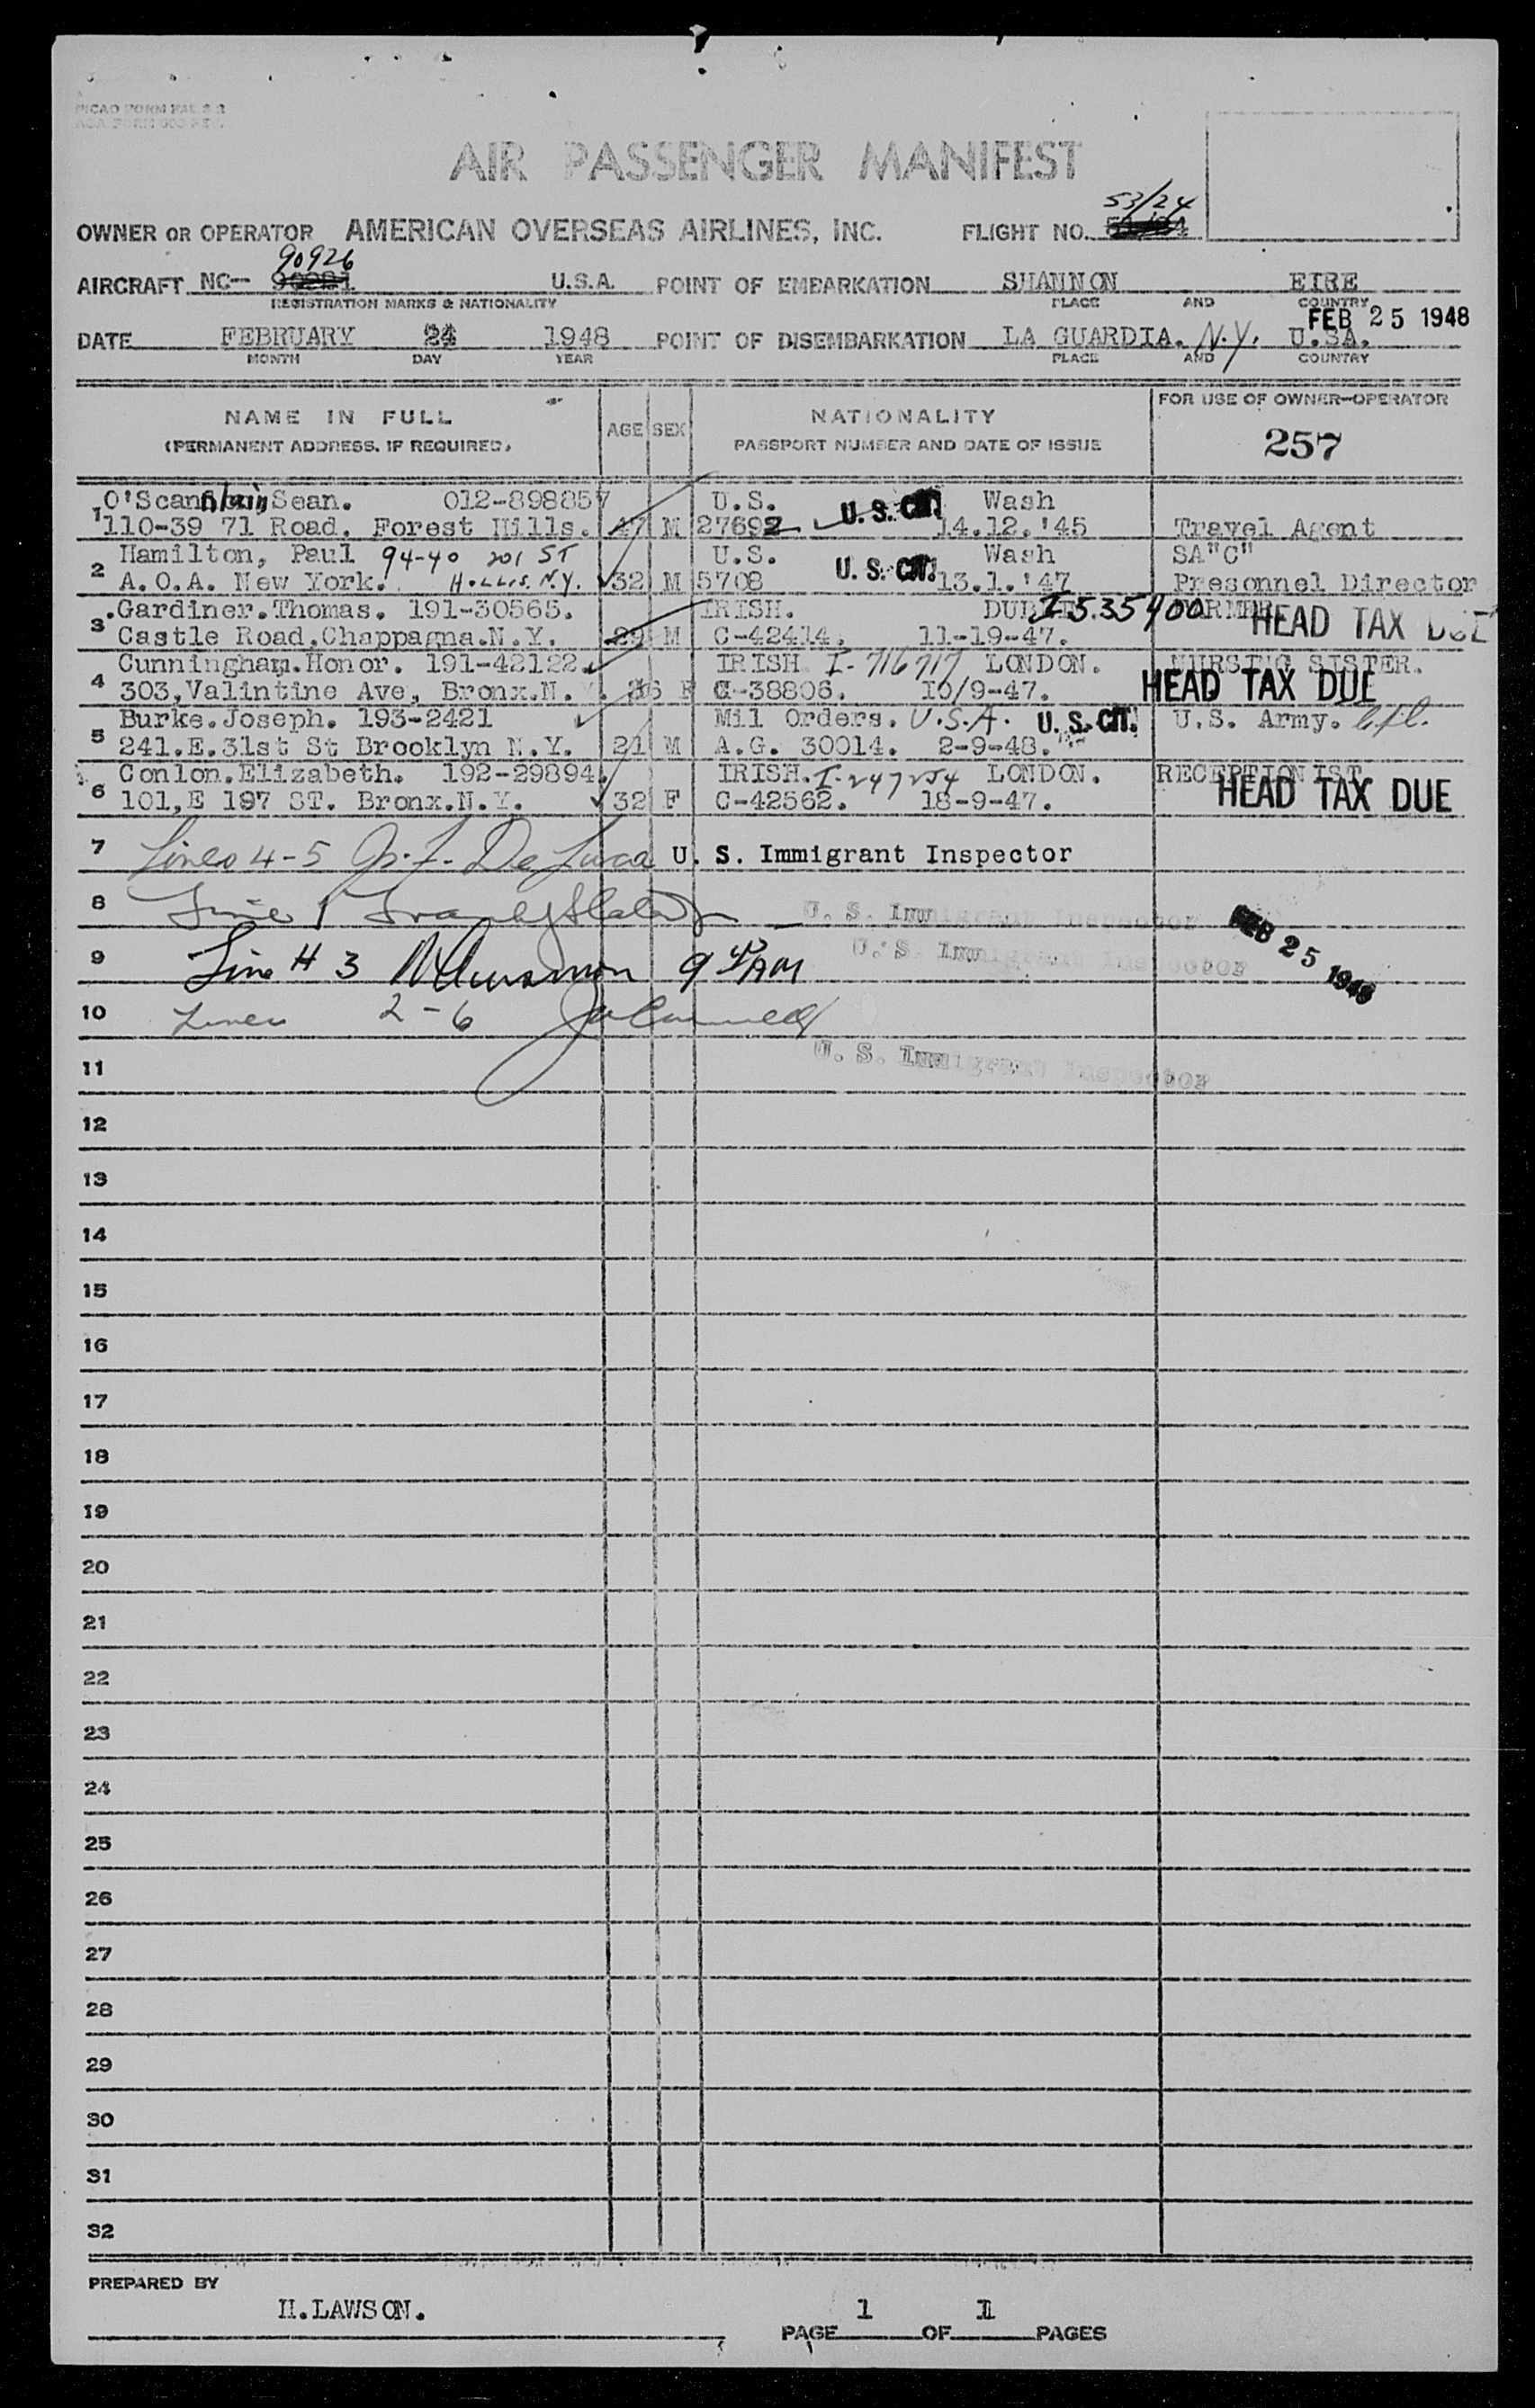 AIR PASSENGER MANIFEST
53/24
OWNER OR OPERATOR AMERICAN OVERSEAS AIRLINES, INC. FLIGHT NO.
90926
AIRCRAFT NC-- U.S.A. POINT OF EMBARKATION SHANNON EIRE
REGISTRATION MARKS & NATIONALITY PLACE AND COUNTRY
FEB 25 1948
DATE FEBRUARY 24 1948 POINT OF DISEMBARKATION LA GUARDIA. N.Y. U.SA.
MONTH DAY YEAR PLACE AND COUNTRY
NAME IN FULL AGE SEX NATIONALITY FOR USE OF OWNER-OPERATOR
(PERMANENT ADDRESS. IF REQUIRED. PASSPORT NUMBER AND DATE OF ISSUE 257
O'Scannlain Sean. 012-898857 U.S. U.S. CIT. Wash
1 110-39 71 Road. Forest Hills. 47 M 27692 14.12.'45 Travel Agent
Hamilton, Paul 94-40 201 ST U.S. U.S. CIT. Wash SA"C"
2 A.O.A. New York. HOLLIS. N.Y. 32 M 5708 13.1.'47 Presonnel Director
.Gardiner.Thomas. 191-30565. IRISH. I535400
3 Castle Road.Chappaqna.N.Y. 29 M C-42414. 11-19-47. HEAD TAX DUE
Cunningham.Honor. 191-42122. IRISH I-716717 LONDON. NURSING SISTER.
4 303,Valintine Ave, Bronx.N.Y. 36 F C-38806. 10/9-47. HEAD TAX DUE
Burke.Joseph. 193-2421 Mil Orders. U.S.A. U.S. CIT. U.S. Army. Cpl.
5 241.E.31st St Brooklyn N.Y. 21 M A.G. 30014. 2-9-48.
Conlon.Elizabeth. 192-29894. IRISH. I-247254 LONDON. RECEPTIONIST
6 101,E 197 ST. Bronx.N.Y. 32 F C-42562. 18-9-47. HEAD TAX DUE
7 Lines 4-5 De Luca U. S. Immigrant Inspector
8 Line 1 U. S. Immigrant Inspector
9 Line # 3 9 45 AM U. S. Immigrant Inspector
FEB 25 1948
10 Lines 2-6
11 U. S. Immigrant Inspector
12
13
14
15
16
17
18
19
20
21
22
23
24
25
26
27
28
29
30
31
32
PREPARED BY
H.LAWSON. 1 1
PAGE OF PAGES